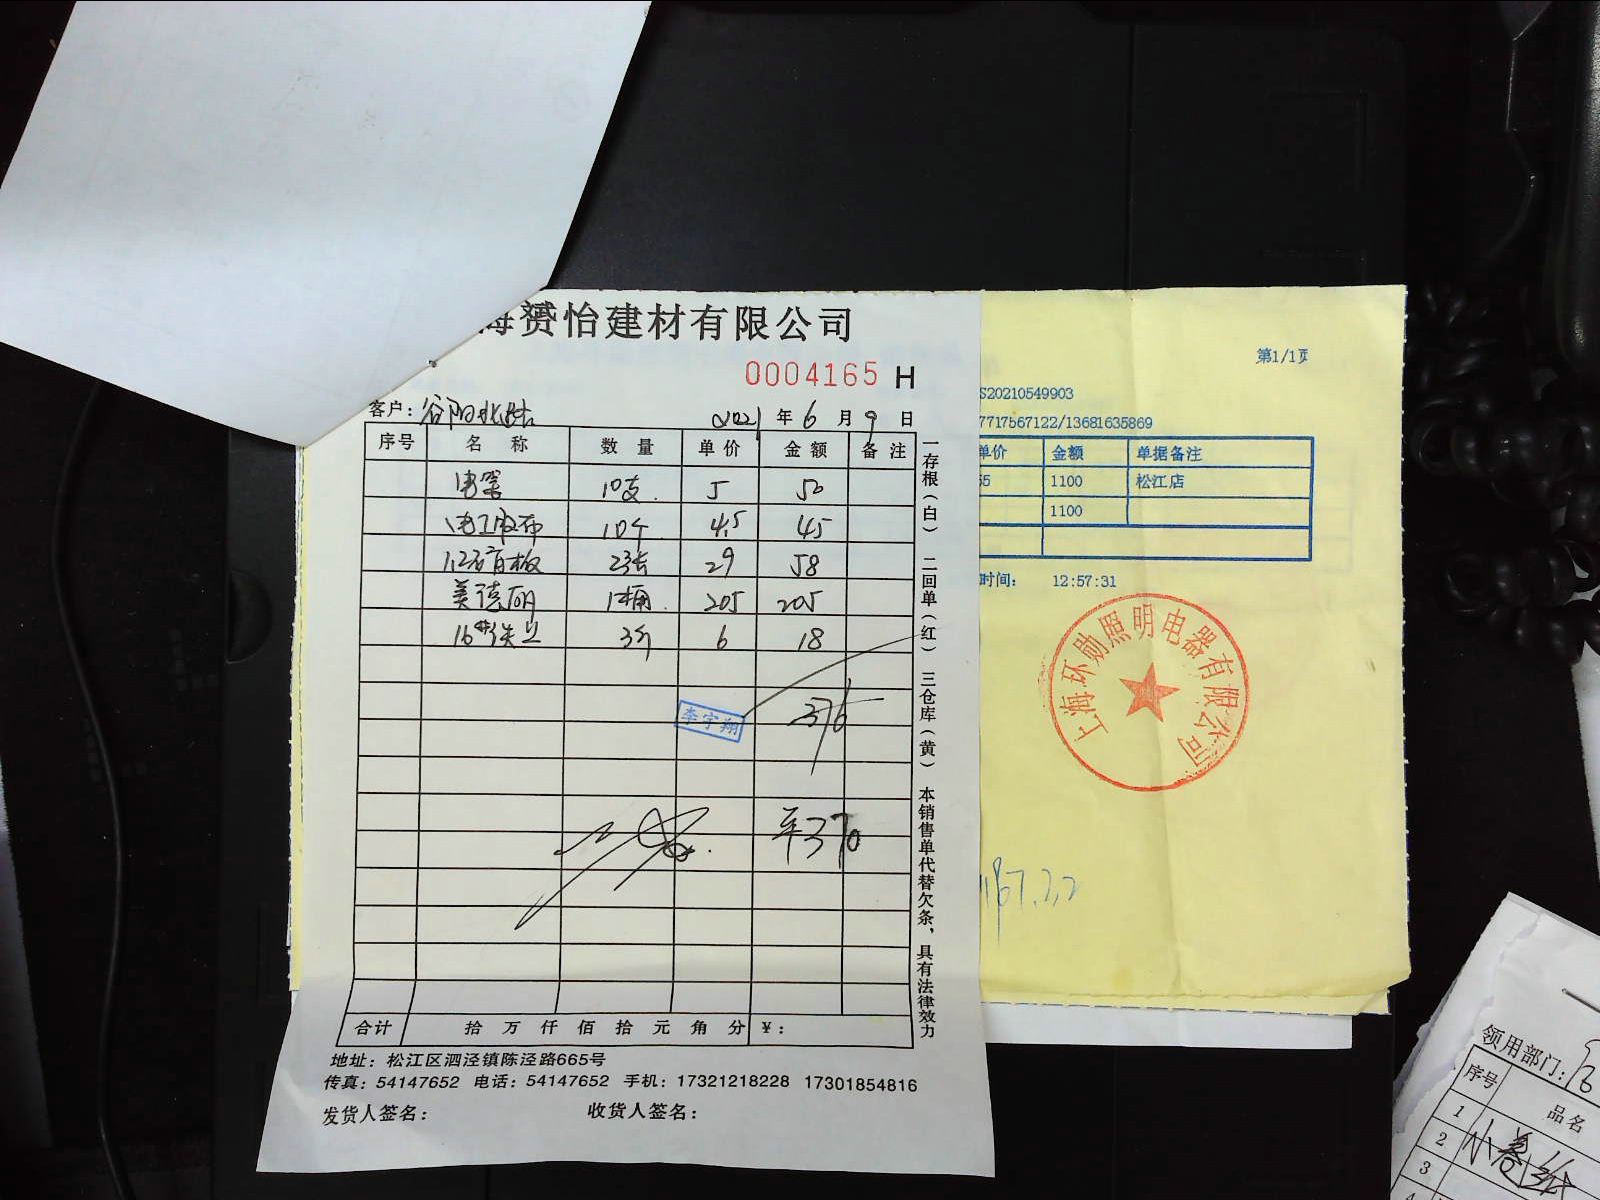 海赟怡建材有限公司
0004165 H
客户：谷阳北路
2021 年 6 月 9 日
序号 名 称 数 量 单价 金 额 备 注
10支. 5 50
电工胶布 10个 4.5 45
石膏板 2张 29 58
美德丽 1桶. 205 205
16#铁丝 3个 6 18
376
李宇翔
平370
合计 拾 万 仟 佰 拾 元 角 分 ¥：
一存根（白） 二回单（红） 三仓库（黄） 本销售单代替欠条，具有法律效力
地址：松江区泗泾镇陈泾路665号
传真：54147652 电话：54147652 手机：17321218228 17301854816
发货人签名： 收货人签名：
第1/1页
S20210549903
7717567122/13681635869
单价 金额 单据备注
55 1100 松江店
1100
时间： 12:57:31
上海环勋照明电器有限公司
领用部门：
序号 品名
1
2
3